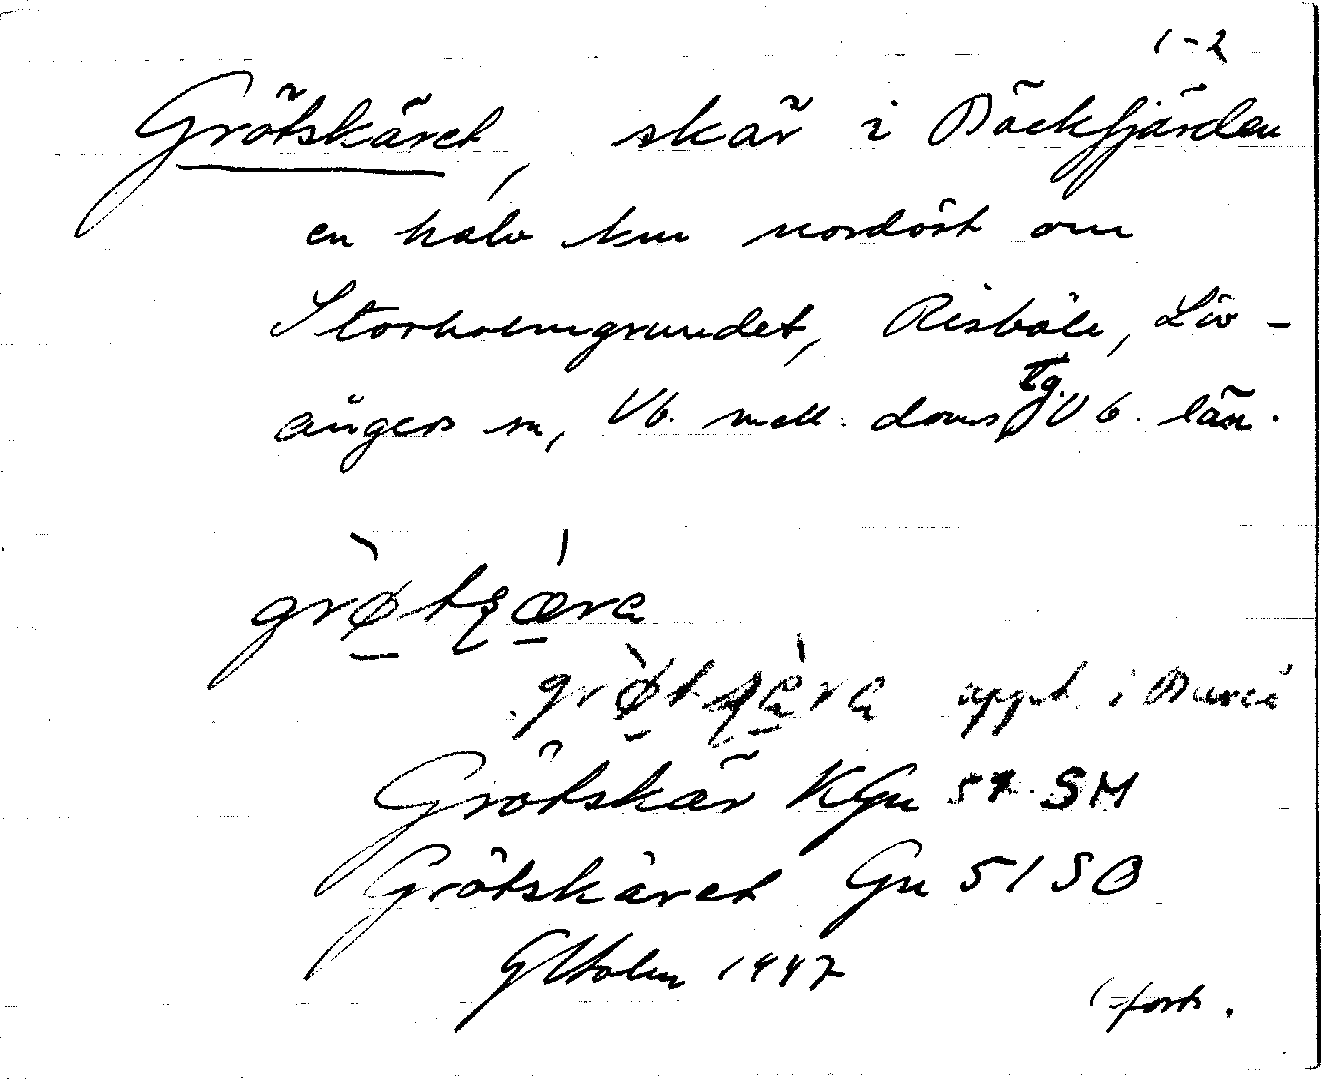 1-2
Grötskäret, skär i Bäckfjärden
en halv km nordöst om
Storholmgrundet, Risböle, Löv-
ångers sn, Vb. mell. doms tg. Vb. län.
uppt. i Bureå
Grötskär KGu 57 SM
Grötskäret Gu 51 SO
G Holm 1947
forts.